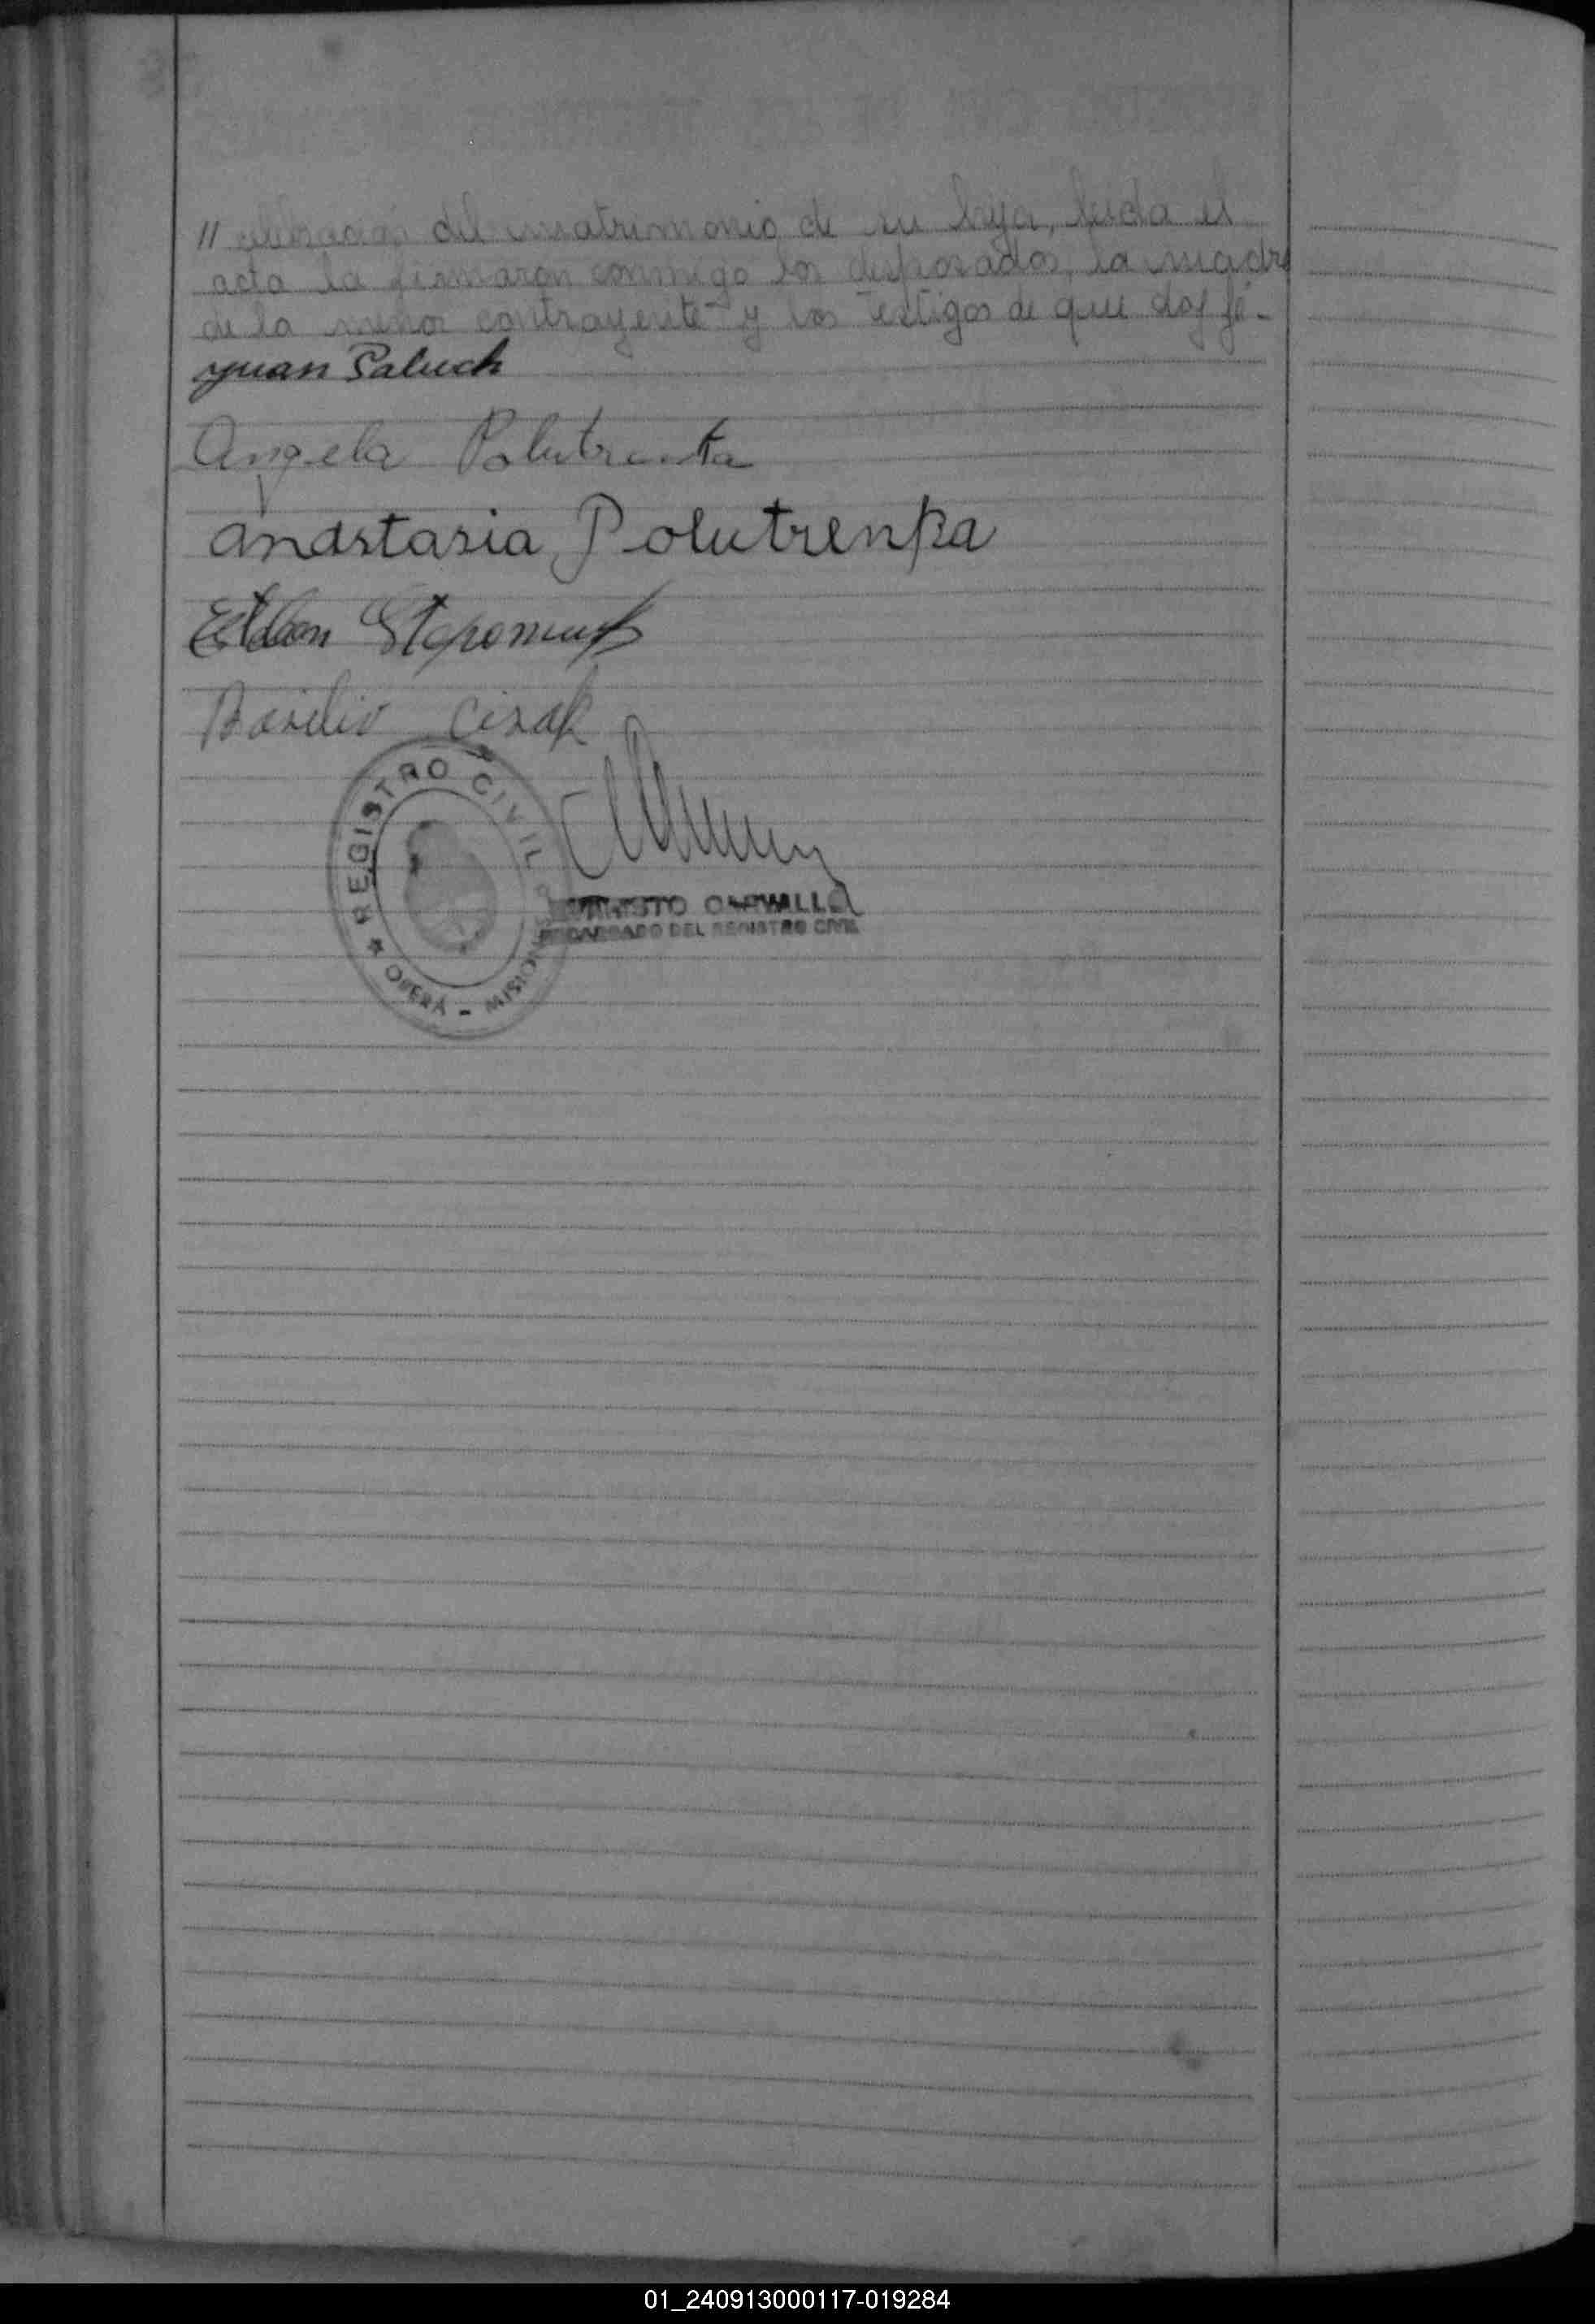 // celebración del matrimonio de su hija, leida el
acta la firmaron conmigo los desposados, la madre
de la menor contrayente y los testigos de que doy fé.-
Juan Paluch
Angela Polutrenka
Anastasia Polutrenka
Esteban
Basilio
REGISTRO CIVIL
OBERÁ - MISIONES
ENCARGADO DEL REGISTRO CIVIL
01_240913000117-019284